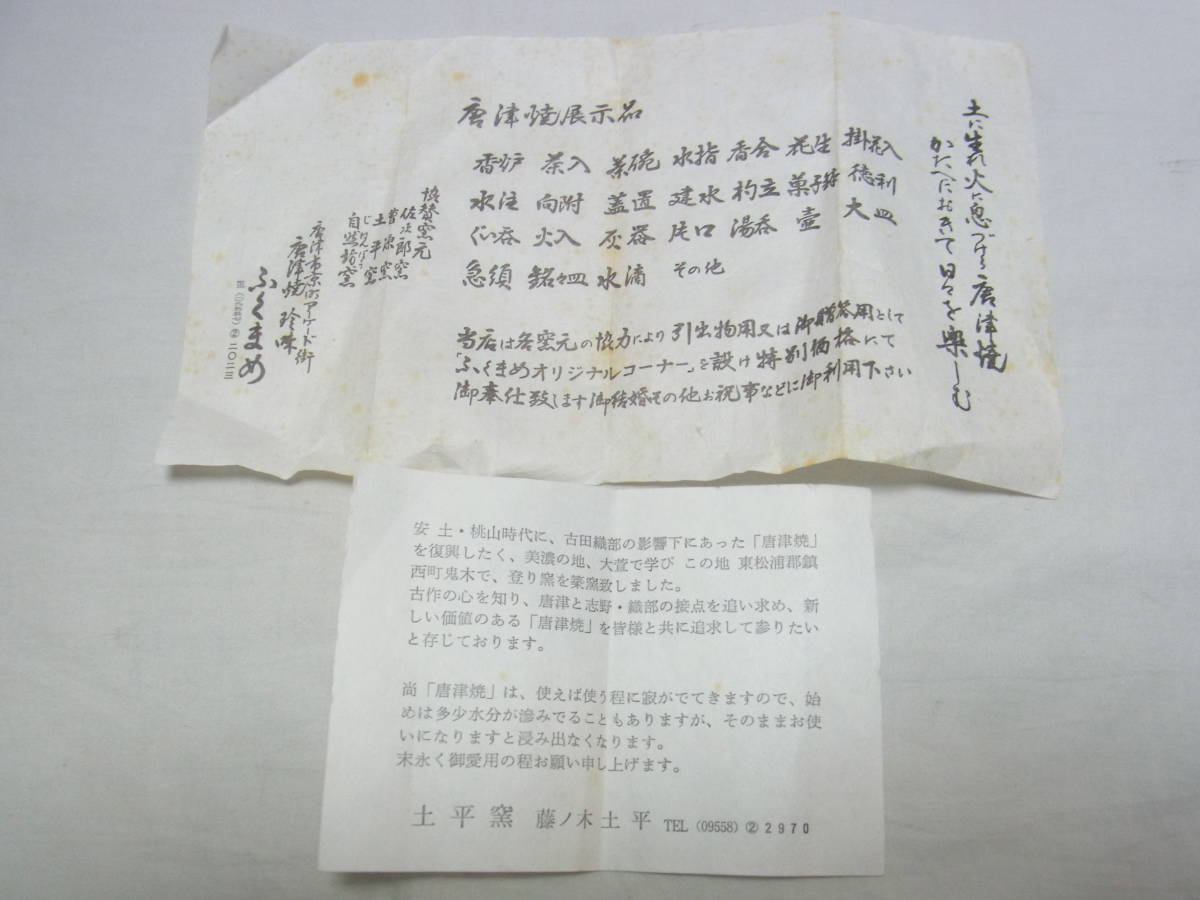 土に生れ火に息づける唐津焼
かたへにおきて日々を楽しむ
唐津焼展示品
香炉 茶入 茶碗 水指 香合 花生 掛花入
水注 向附 蓋置 建水 杓立 菓子鉢 徳利
ぐい呑 火入 灰器 片口 湯呑 壷 大皿
急須 銘々皿 水滴 その他
当店は各窯元の協力により引出物用又は御贈答用として
「ふくまめオリジナルコーナー」を設け特別価格にて
御奉仕致します御結婚その他お祝事などに御利用下さい
協賛窯元
佐次郎窯
曹源窯
土平窯
自然坊窯
唐津市京町アーケード街
唐津焼 珍味
ふくまめ
二〇二三
安土・桃山時代に、古田織部の影響下にあった「唐津焼」
を復興したく、美濃の地、大萱で学び この地 東松浦郡鎮
西町鬼木で、登り窯を築窯致しました。
古作の心を知り、唐津と志野・織部の接点を追い求め、新
しい価値のある「唐津焼」を皆様と共に追求して参りたい
と存じております。
尚「唐津焼」は、使えば使う程に寂がでてきますので、始
めは多少水分が滲みでることもありますが、そのままお使
いになりますと浸み出なくなります。
末永く御愛用の程お願い申し上げます。
土平窯 藤ノ木土平 TEL (09558) ② 2970